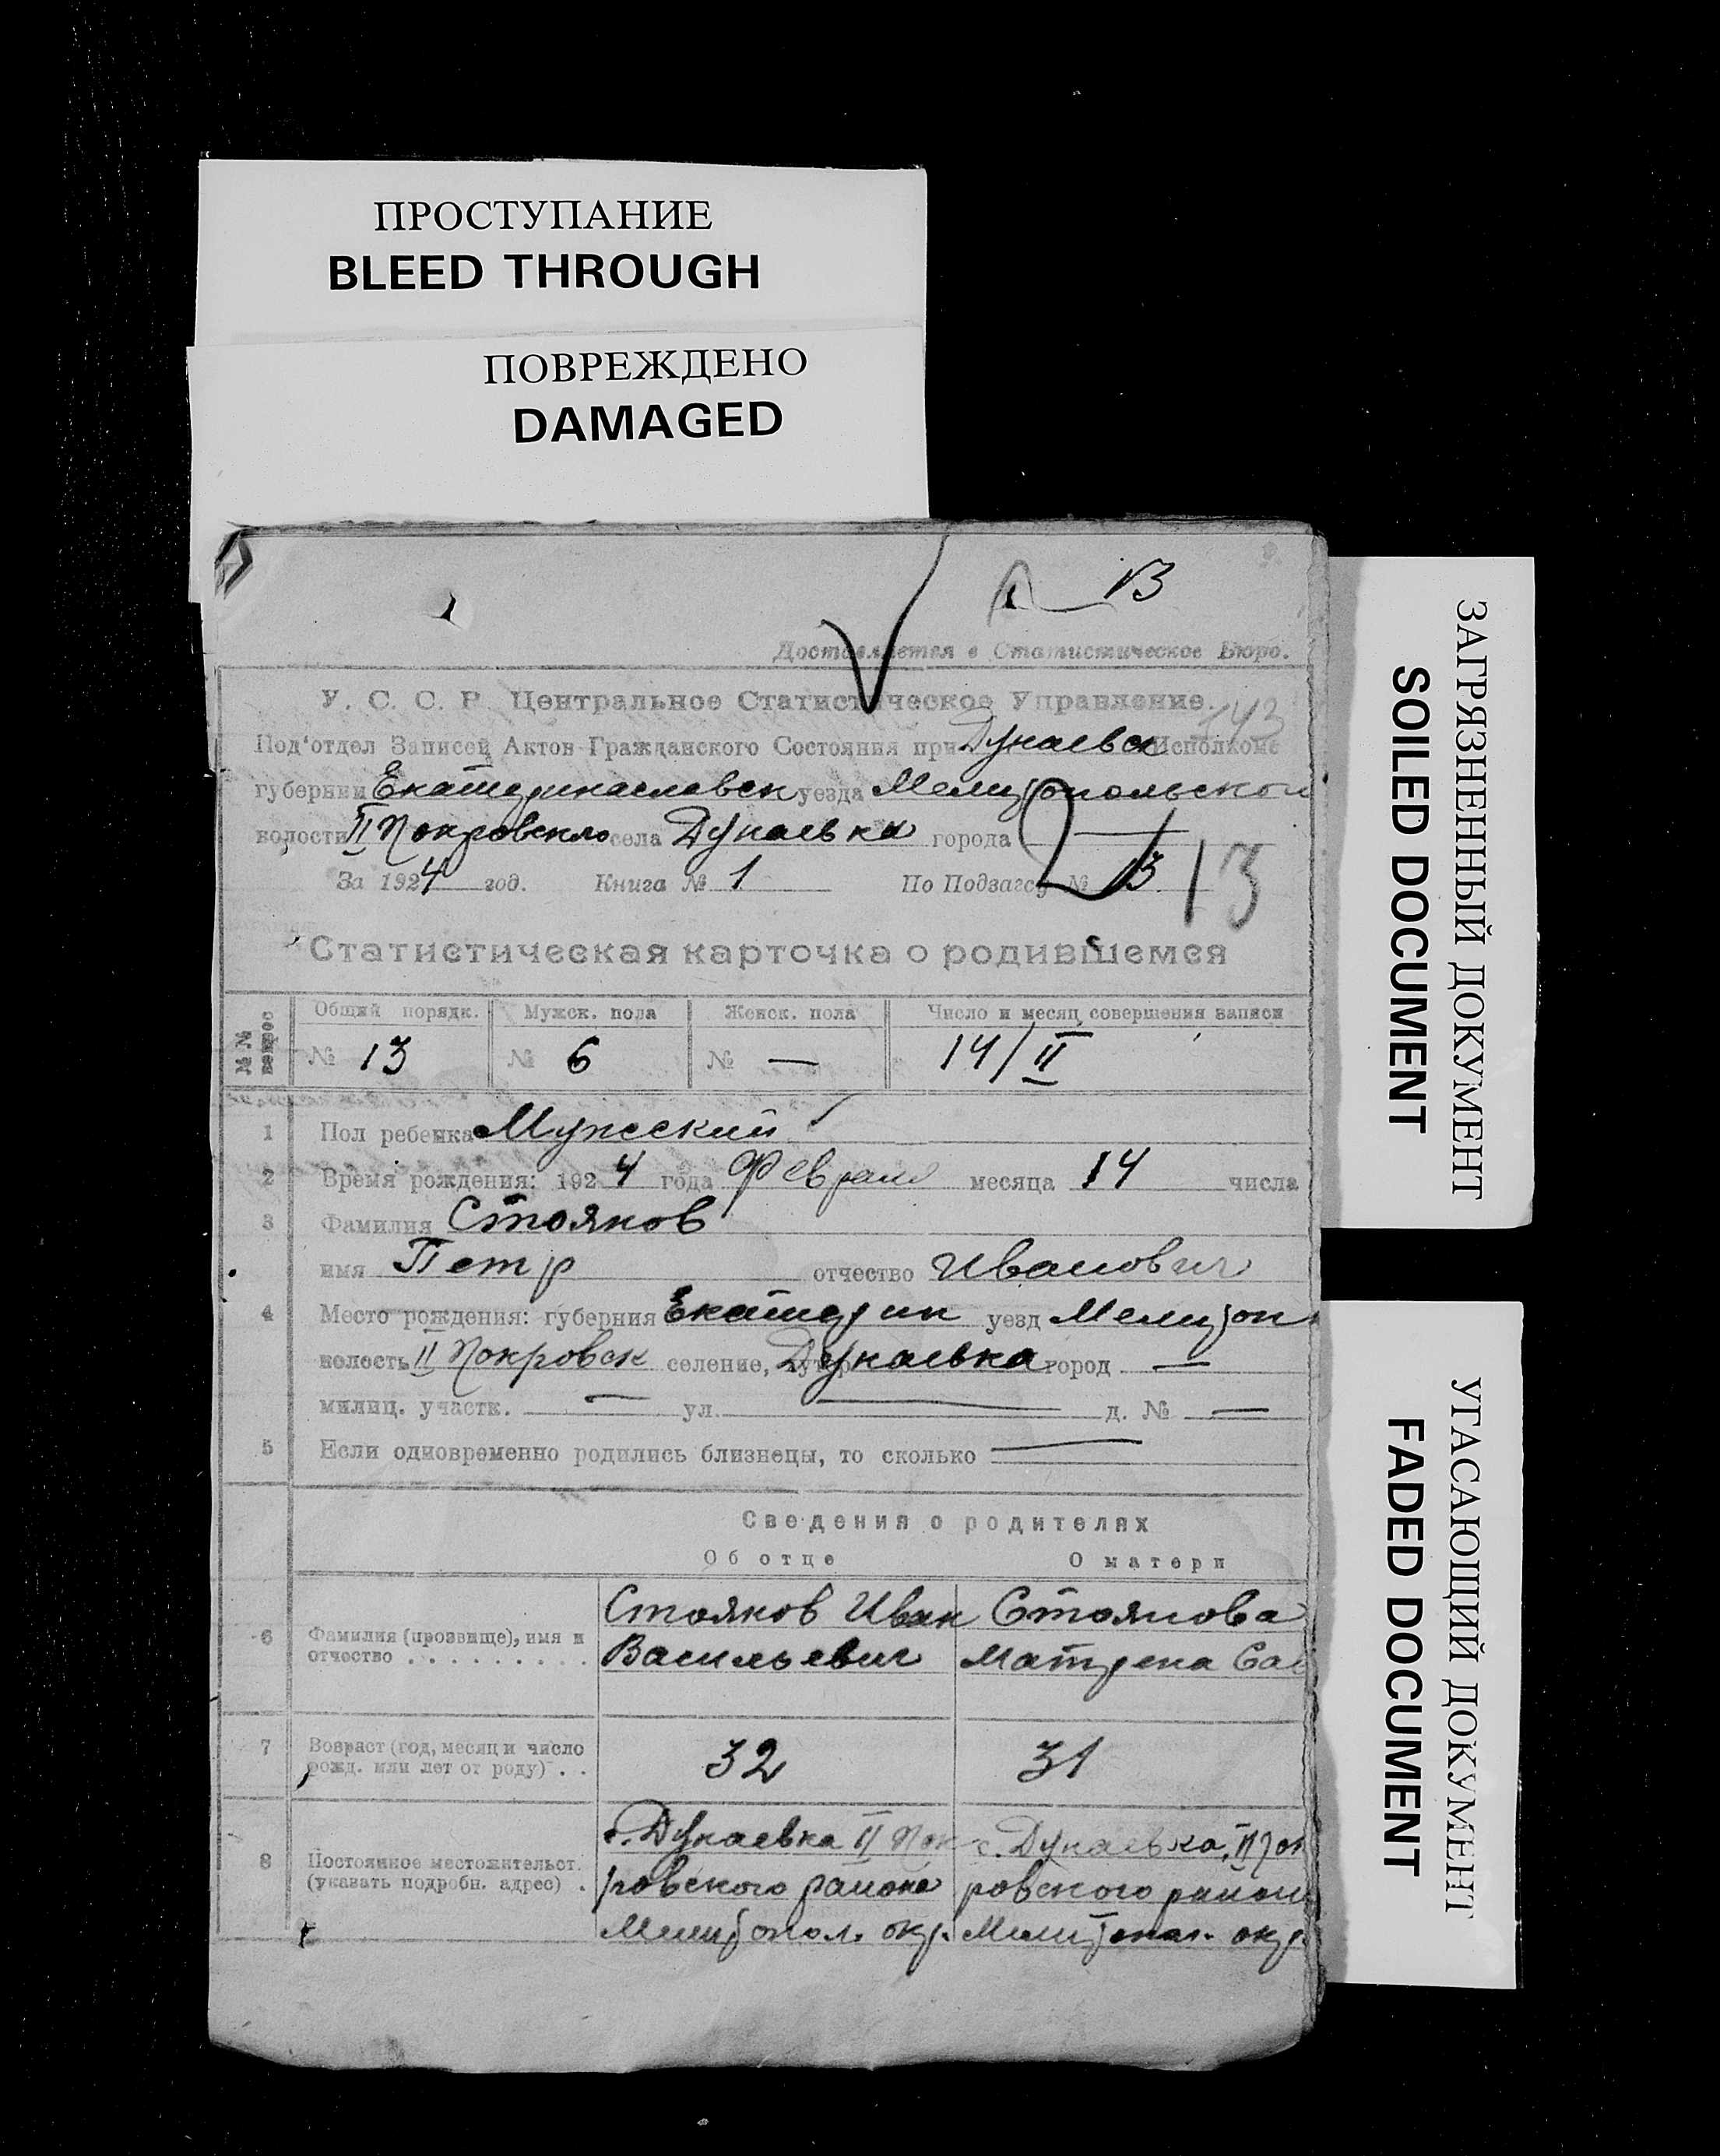 ПРОСТУПАНИЕ
BLEED THROUGH
ПОВРЕЖДЕНО
DAMAGED
13
Доставляется в Статистическое Бюро.
У. С. С. Р. Центральное Статистическое Управление.
143
Под'отдел Записей Актов Гражданского Состояния при Дунаевск Исполкоме
губернии Екатеринославск уезда Мелитопольской
волости II Покровско села Дунаевка города —
За 1924 год. Книга № 1 По Подзагсу № 13 13
Статистическая карточка о родившемся
№№ вопрос Общий порядк. Мужск. пола Женск. пола Число и месяц совершения записи
№ 13 № 6 № — 14/II
1 Пол ребенка Мужеский
2 Время рождения: 1924 года Февраля месяца 14 числа
3 Фамилия Стоянов
имя Петр отчество Иванович
4 Место рождения: губерния Екатерин уезд Мелитоп
волость II Покровск селение, хутор Дунаевка город —
милиц. участк. — ул. — д. № —
5 Если одновременно родились близнецы, то сколько —
Сведения о родителях
Об отце О матери
6 Фамилия (прозвище), имя и отчество . . . . . . . . .
Стоянов Иван Васильевич
Стоянова Матрена Сав
7 Возраст (год, месяц и число рожд. или лет от роду) . .
32 31
8 Постоянное местожительст. (указать подробн. адрес) .
с. Дунаевка II Пок
ровского района
Мелитопол. окр.
с. Дунаевка, II Пок
ровского района
Мелитопол. окр.
ЗАГРЯЗНЕННЫЙ ДОКУМЕНТ
SOILED DOCUMENT
УГАСАЮЩИЙ ДОКУМЕНТ
FADED DOCUMENT